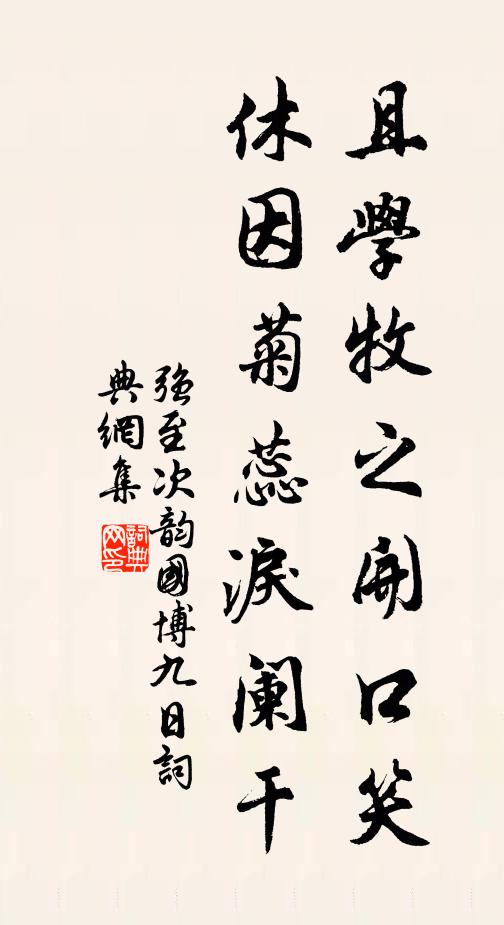 且學牧之開口笑
休因菊蕊淚闌干
强至次韵國博九日詞
典網集
詞典
网印